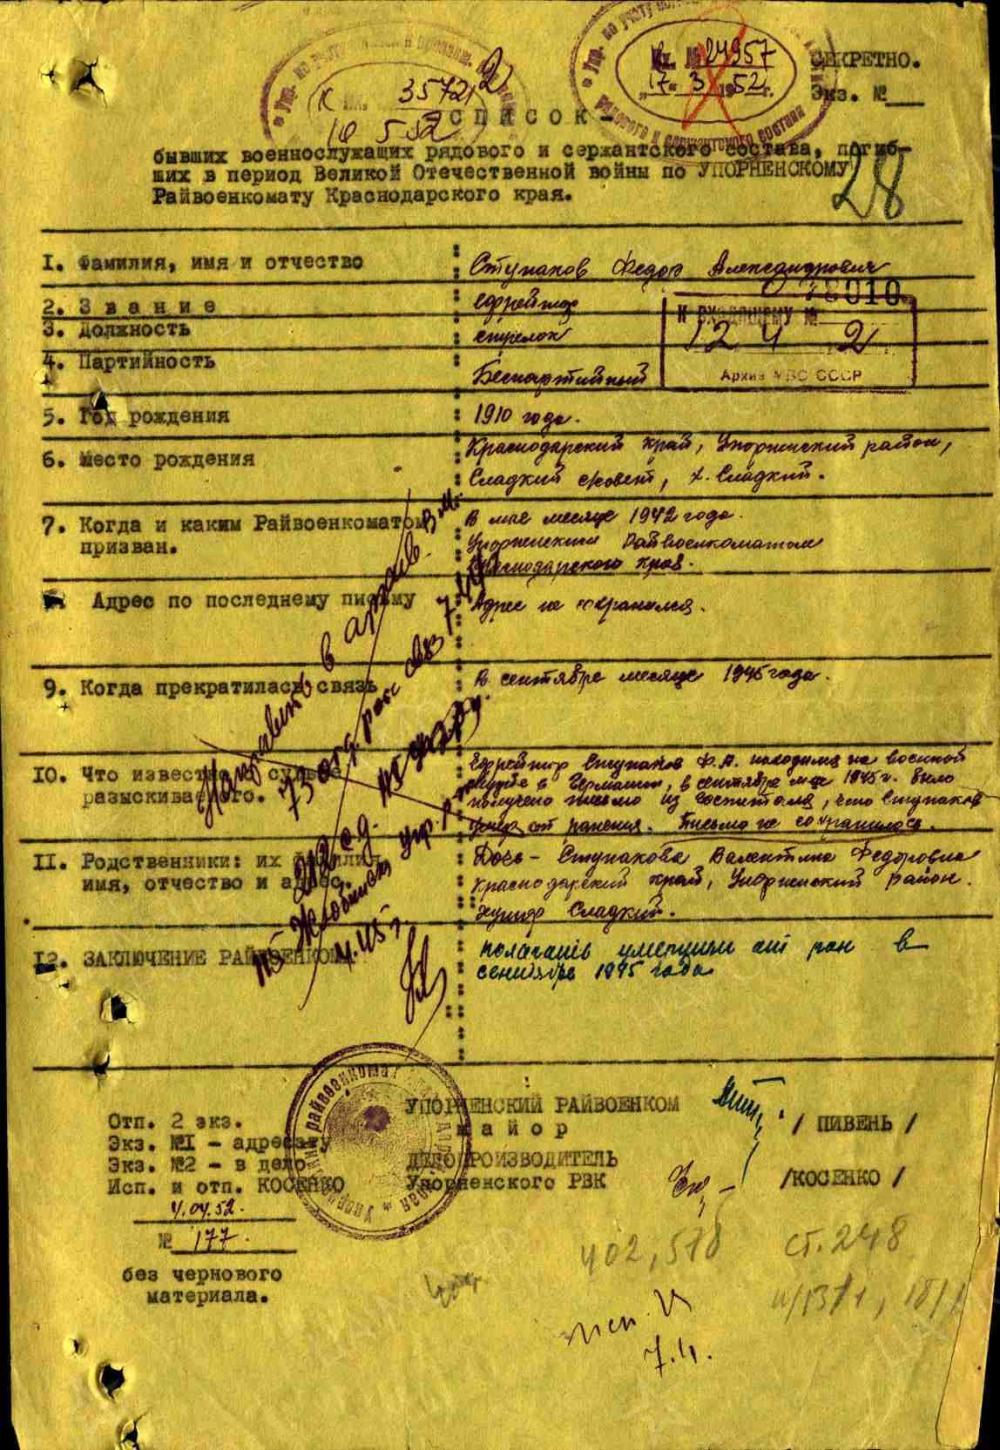 35721
Вх. № 24957
"17" 3 1952 г.
рядового и сержантского состава
СЕКРЕТНО.
Экз. №
СПИСОК
бывших военнослужащих рядового и сержантского состава, погиб-
ших в период Великой Отечественной войны по УПОРНЕНСКОМУ
Райвоенкомату Краснодарского края.
28
1. Фамилия, имя и отчество : Ступаков Федор Александрович
2. Звание : ефрейтор
010
3. Должность : стрелок
К ВХОДЯЩЕМУ №
Архив МВС СССР
4. Партийность : Беспартийный
5. Год рождения : 1910 года.
6. Место рождения : Краснодарский край, Упорненский район,
Сладкий совет, х. Сладкий.
7. Когда и каким Райвоенкоматом призван. : В мае месяце 1942 года.
Упорненским Райвоенкоматом
Краснодарского края.
Адрес по последнему письму : Адрес не сохранился.
9. Когда прекратилась связь : В сентябре месяце 1945 года.
10. Что известно о судьбе разыскиваемого. : Ефрейтор Ступаков Ф.А. находился на военной
службе в Германии, в сентябре м-це 1945 г. было
получено письмо из госпиталя, что Ступаков
умер от ранения. Письмо не сохранилось.
11. Родственники: их фамилия, имя, отчество и адрес. : Дочь - Ступакова Валентина Федоровна
Краснодарский край, Упорненский район.
хутор Сладкий.
12. ЗАКЛЮЧЕНИЕ РАЙВОЕНКОМА : полагать умершим от ран в
сентябре 1945 года
УПОРНЕНСКИЙ РАЙВОЕНКОМ
майор / ПИВЕНЬ /
ДЕЛОПРОИЗВОДИТЕЛЬ
Упорненского РВК /КОСЕНКО /
Отп. 2 экз.
Экз. №1 - адресату
Экз. №2 - в дело
Исп. и отп. КОСЕНКО
4.04.52.
№ 177.
без чернового
материала.
402,578
ст. 248
7.4.